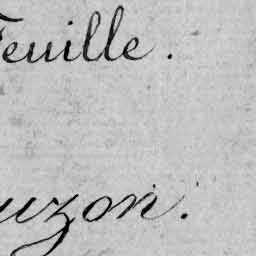 Feuille.
uzon.